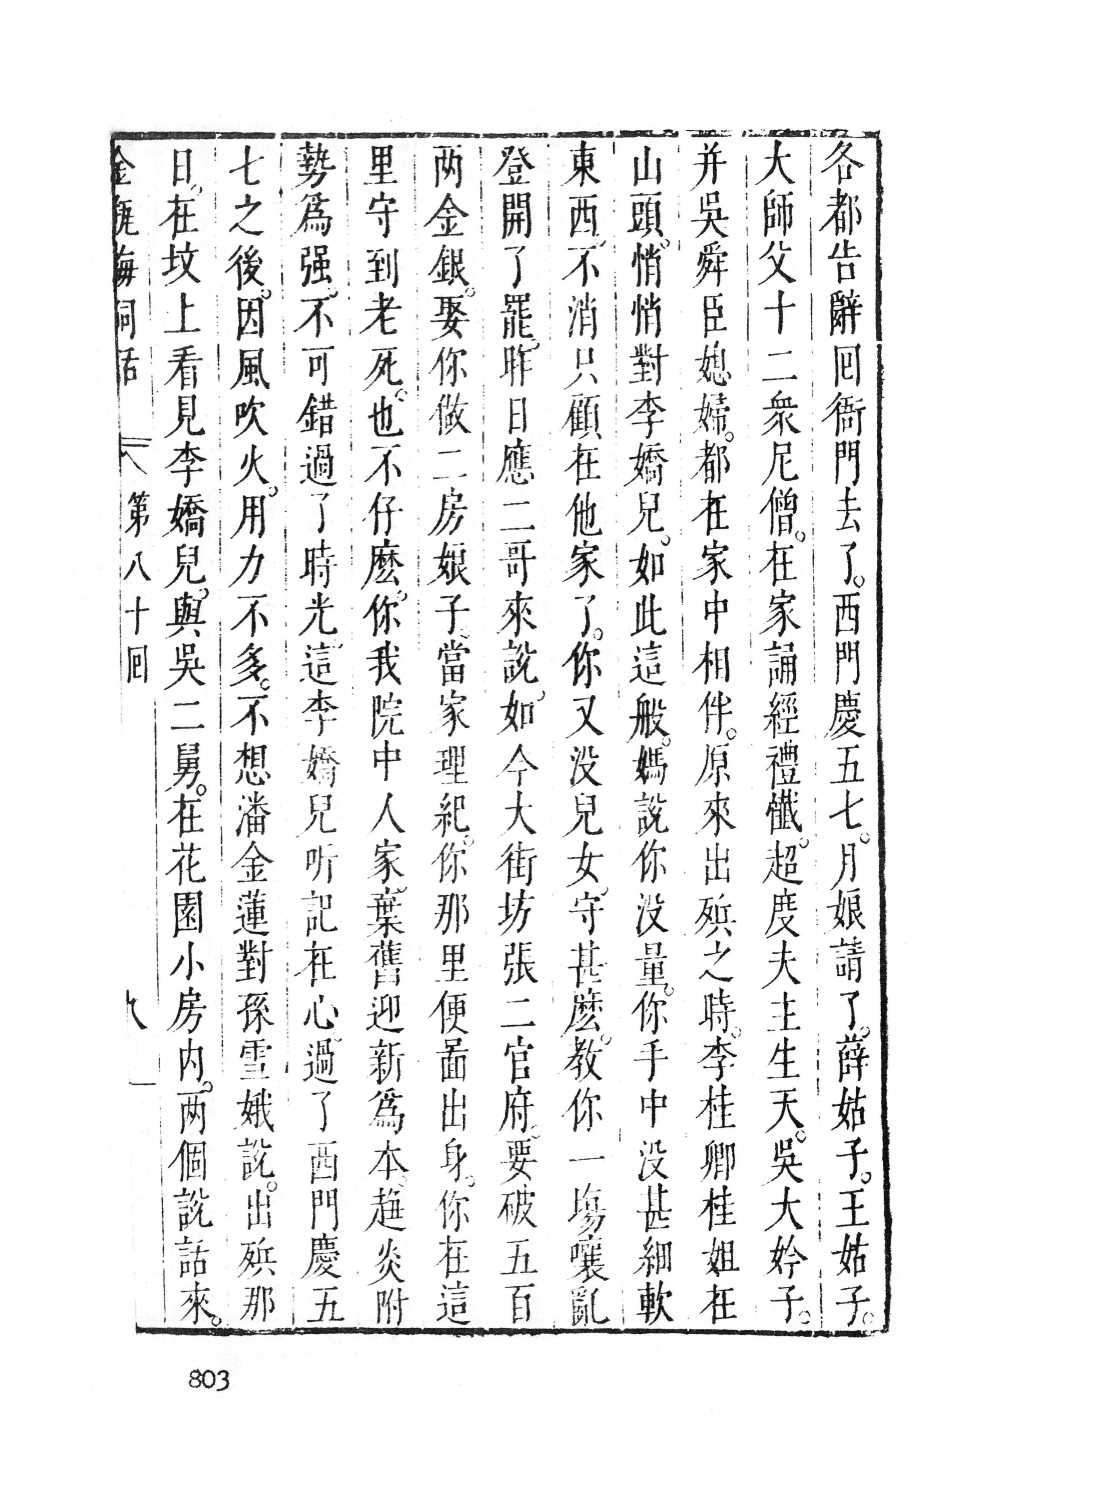 各都告辭回衙門去了。西門慶五七。月娘請了。薛姑子。王姑子。
大師父十二衆尼僧。在家誦經禮懺。超度夫主生天。吳大妗子。
并吳舜臣媳婦。都在家中相伴。原來出殯之時。李桂卿桂姐在
山頭。悄悄對李嬌兒。如此這般。媽說你沒量。你手中沒甚細軟
東西。不消只顧在他家了。你又沒兒女。守甚麽。教你一塲嚷亂
登開了罷。昨日應二哥來說。如今大街坊張二官府。要破五百
两金銀。娶你做二房娘子。當家理紀。你那里便啚出身。你在這
里守到老死。也不仔麽。你我院中人家。棄舊迎新爲本。趨炎附
勢爲强。不可錯過了時光。這李嬌兒听記在心。過了西門慶五
七之後。因風吹火。用力不多。不想潘金蓮對孫雪娥說。出殯那
日。在坟上看見李嬌兒。與吳二舅。在花園小房内。两個說話來。
金瓶梅詞話
第八十回
九
803